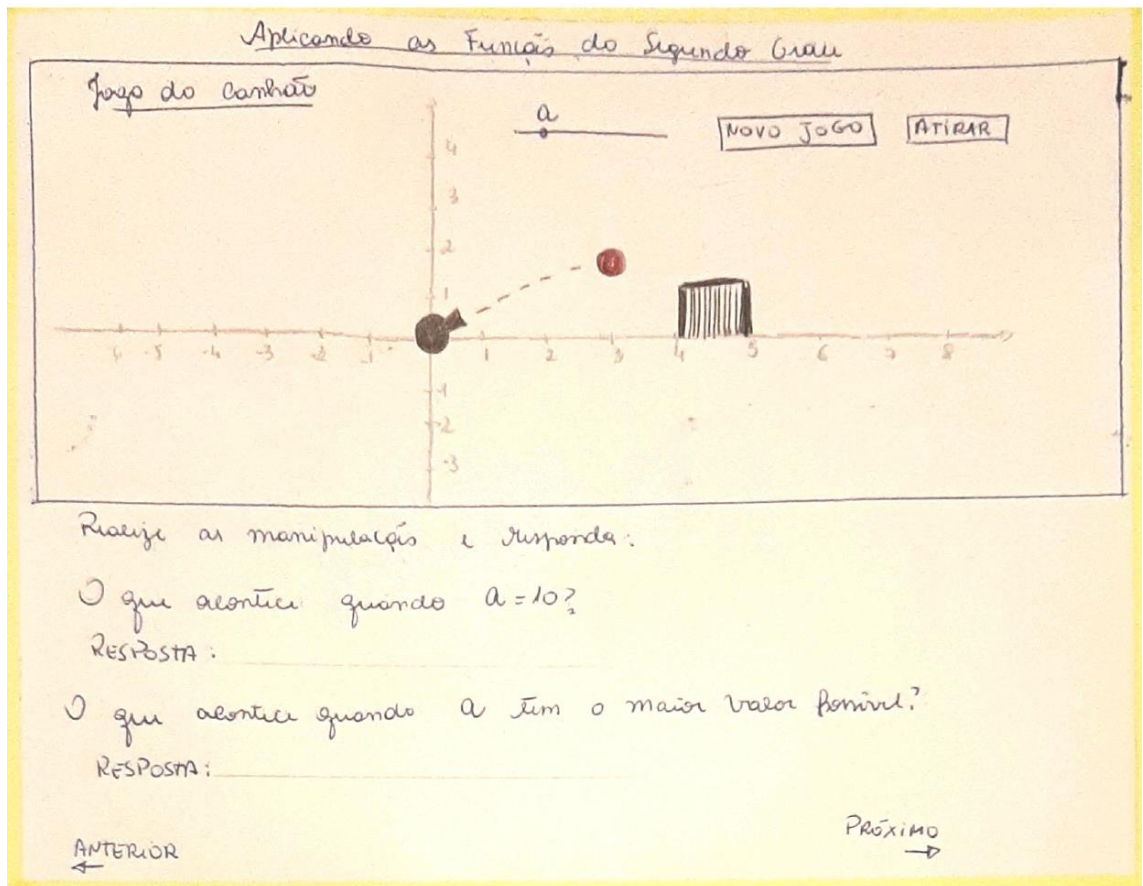 Aplicando as Função do Segundo Grau
Jogo do Canhão
a
NOVO JOGO
ATIRAR
4
3
2
1
-5 -4 -3 -2 -1 1 2 3 4 5 6 7 8
-1
-2
-3
Realize as manipulações e responda:
O que acontece quando a = 10?
RESPOSTA:
O que acontece quando a tem o maior valor possível?
RESPOSTA:
PRÓXIMO
ANTERIOR